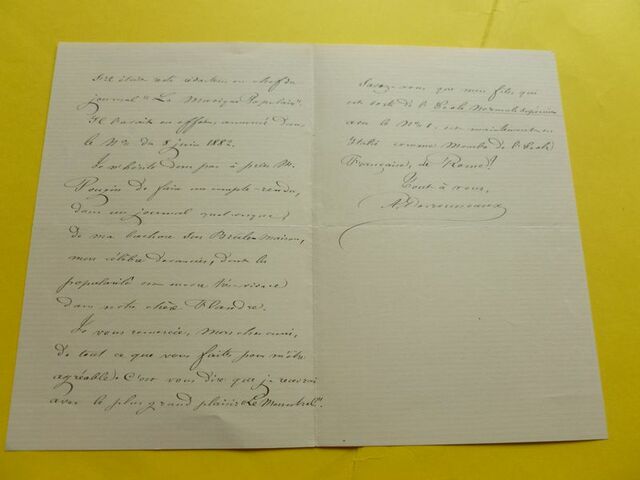 s'il était redacteur en chef du
journal "La Musique Populaire".
Il l'avait en effet, annoncé dans
le N° du 8 juin 1882.
Je n'hésite donc pas à prier M.
Pougin de faire un compte-rendu,
dans un journal quelconque,
de ma brochure sur Brûle-Maison,
mon célèbre devancier, dont la
popularité est encore
dans notre chère Flandre.
Je vous remercie, mon cher ami,
de tout ce que vous faites pour m'être
agréable. C'est vous dire que je recevrai
avec le plus grand plaisir Le Menestrel".
Savez-vous que mon fils qui
est sorti de l'Ecole Normale supérieure
avec le N° 1, est maintenant en
Italie comme Membre de l'Ecole
Française, de Rome!
Tout à vous,
A. Desrousseaux